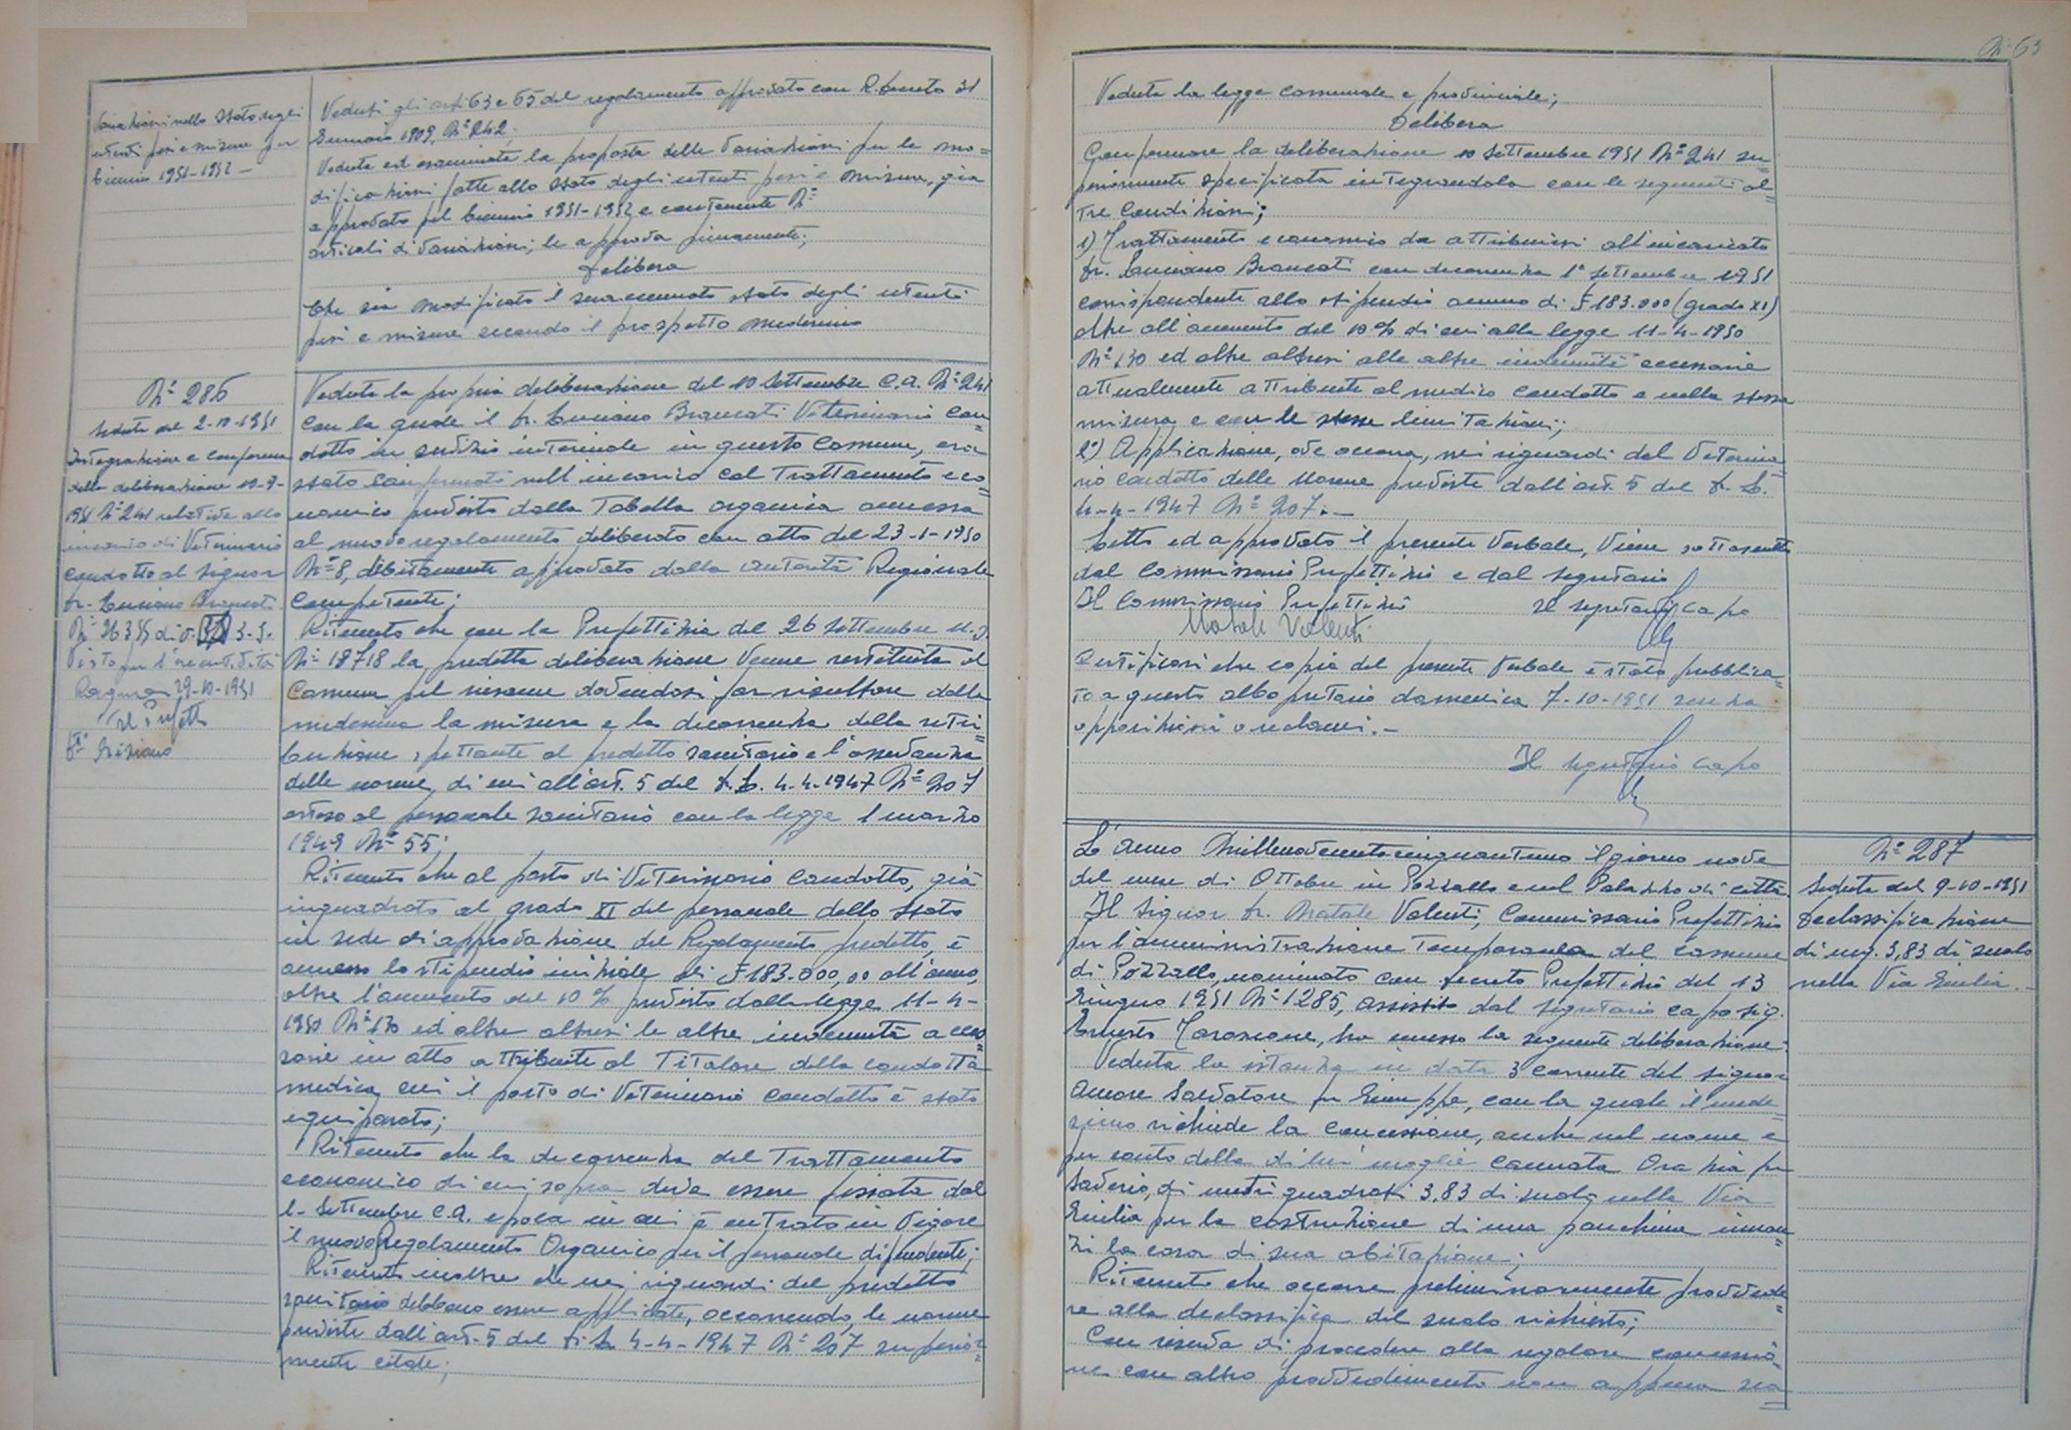 Variazioni nello stato degli
utenti pesi e misure pel
biennio 1951-1952 -
Veduti gli art. 63 e 65 del regolamento approvato con R. Decreto 31
Gennaio 1909, N° 242;
Veduta ed esaminata la proposta delle variazioni per le mo=
dificazioni fatte allo stato degli utenti pesi e misure, già
approvato pel biennio 1951-1952 e contenente N°
articoli di variazioni; la approva pienamente;
Delibera
Che sia modificato il suaccennato stato degli utenti
pesi e misure secondo il prospetto medesimo
N° 286
Seduta del 2-10-1951
Integrazione e conferma
della deliberazione 10-9-
1951 N° 241 relativa allo
incarico di Veterinario
condotto al Signor
Dr. Luciano Brancati
N° 26355 di v. 3-S.
Visto per l'esecutività
Ragusa 29-10-1951
Il Prefetto
Veduta la propria deliberazione del 10 Settembre c.a. N° 241
con la quale il Dr. Luciano Brancati Veterinario con=
dotto in servizio interinale in questo Comune, era
stato confermato nell'incarico col trattamento eco=
nomico previsto dalla Tabella organica annessa
al nuovo regolamento deliberato con atto del 23-1-1950
N° 8, debitamente approvato dalla autorità Regionale
competente;
Ritenuto che con la Prefettizia del 26 Settembre u.s.
N° 18718 la predetta deliberazione venne restituita al
Comune pel riesame dovendosi far risultare dalla
medesima la misura e la decorrenza della retri=
buzione spettante al predetto sanitario e l'osservanza
delle norme, di cui all'art. 5 del D.L. 4-4-1947 N° 207
esteso al personale sanitario con la legge 1 marzo
1949 N° 55;
Ritenuto che al posto di Veterinario Condotto, già
inquadrato al grado XI del personale dello Stato
in sede di approvazione del Regolamento predetto, è
annesso lo stipendio iniziale di £ 183.000,00 all'anno,
oltre l'aumento del 10% previsto dalla legge 11-4-
1950 N° 130 ed altre altresì le altre indennità acces=
sorie in atto attribuite al Titolare della condotta
medica, cui il posto di Veterinario Condotto è stato
equiparato;
Ritenuto che la decorrenza del Trattamento
economico di cui sopra deve essere fissata dal
1- Settembre c.a. epoca in cui è entrato in vigore
il nuovo Regolamento Organico per il personale dipendente;
Ritenuto inoltre che nei riguardi del predetto
sanitario debbono essere applicate, occorrendo, le norme
previste dall'art. 5 del D.L. 4-4-1947 N° 207 superior=
mente citate;
N° 63
Veduta la legge comunale e provinciale;
Delibera
Confermare la deliberazione 10 Settembre 1951 N° 241 su=
periormente specificata integrandola con le seguenti al=
tre condizioni;
1) Trattamento economico da attribuirsi all'incaricato
Dr. Luciano Brancati con decorrenza 1° Settembre 1951
corrispondente allo stipendio annuo di £ 183.000 (grado XI)
oltre all'aumento del 10% di cui alla legge 11-4-1950
N° 130 ed oltre altresì alle altre indennità accessorie
attualmente attribuite al medico condotto e nella stessa
misura e con le stesse limitazioni;
2°) Applicazione, ove occorra, nei riguardi del Veterina=
rio condotto delle norme previste dall'art. 5 del D.L.
4-4-1947 N° 207.-
Letto ed approvato il presente Verbale, viene sottoscritto
dal Commissario Prefettizio e dal Segretario
Il Commissario Prefettizio Il Segretario Capo
Natale Valenti
Certificasi che copia del presente Verbale è stato pubblica=
to a questo albo pretorio domenica 7-10-1951 senza
opposizioni o reclami.-
Il Segretario Capo
L'anno Millenovecentocinquantuno il giorno nove
del mese di Ottobre in Pozzallo e nel Palazzo di città
Il Signor Dr. Natale Valenti, Commissario Prefettizio
per l'amministrazione Temporanea del Comune
di Pozzallo, nominato con Decreto Prefettizio del 13
Giugno 1951 N° 1285, assistito dal Segretario capo sig.
Ernesto, ha emesso la seguente deliberazione:
Veduta la istanza in data 3 corrente del signor
Amore Salvatore fu Giuseppe, con la quale il mede=
simo richiede la concessione, anche nel nome e
per conto della di lui moglie Cannata Orazia fu
Saverio, di metri quadrati 3,83 di suolo nella Via
Giulia per la costruzione di una panchina innan=
zi la casa di sua abitazione;
Ritenuto che occorre preliminarmente provvede=
re alla declassifica del suolo richiesto;
Con riserva di procedere alla regolare concessio=
ne con altro provvedimento non appena sia
N° 287
Seduta del 9-10-1951
Declassificazione
di mq. 3,83 di suolo
nella Via Giulia.-